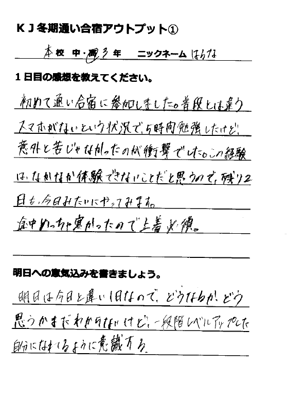 KJ冬期通い合宿アウトプット①
本校 中・高3年 ニックネーム はるな
1日目の感想を教えてください。
初めて通い合宿に参加しました。普段とは違う
スマホがないという状況で5時間勉強したけど、
意外と苦じゃなかったのが衝撃でした。この経験
は、なかなか体験できないことだと思うので、残り2
日も、今日みたいにやってみます。
途中めっちゃ寒かったので上着必須。
明日への意気込みを書きましょう。
明日は今日と違い1日なので、どうなるか、どう
思うかまだわからないけど、一段階レベルアップした
自分になれるように意識する。